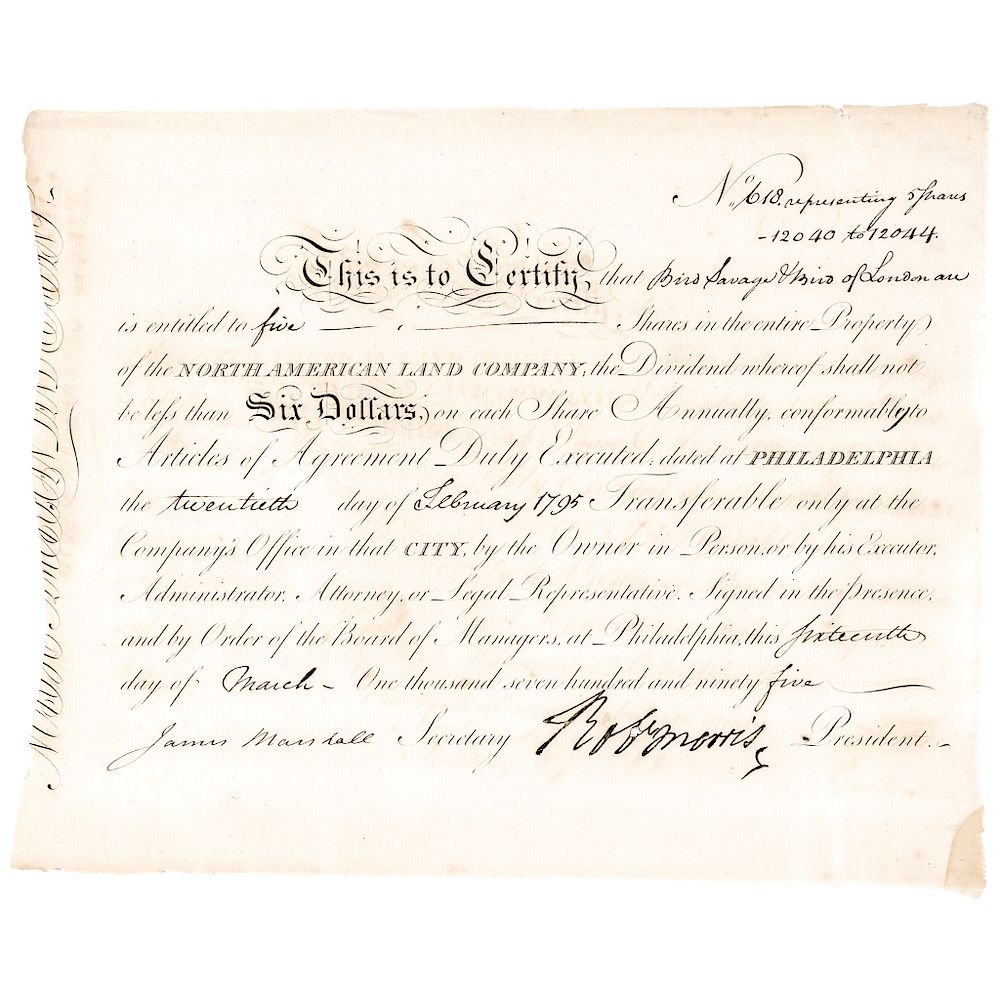 No. 618. representing 5 Shares
-12040 to 12044.
This is to Certify, that Bird Savage & Bird of London are
is entitled to five Shares in the entire Property
of the NORTH AMERICAN LAND COMPANY; the Dividend whereof shall not
be less than Six Dollars, on each Share Annually, conformably to
Articles of Agreement Duly Executed; dated at PHILADELPHIA
the twentieth day of February 1795 Transferable only at the
Company's Office in that CITY, by the Owner in Person, or by his Executor,
Administrator, Attorney, or Legal Representative. Signed in the presence,
and by Order of the Board of Managers, at Philadelphia, this sixteenth
day of March - One thousand seven hundred and ninety five
James Marshall Secretary Robt Morris, President.